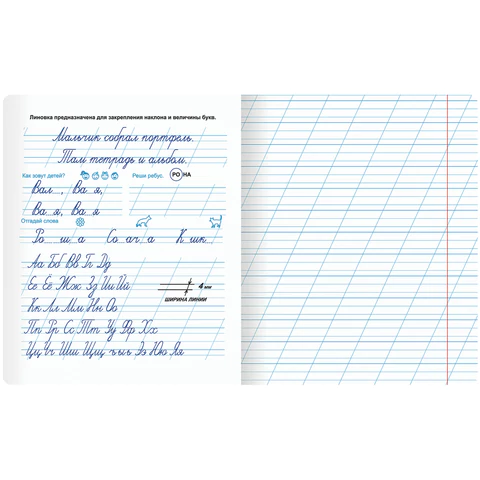 Линовка предназначена для закрепления наклона и величины букв.
Мальчик собрал портфель.
Там тетрадь и альбом.
Как зовут детей?
Реши ребус. РО НА
Вал , Ва я,
Ва я, Ва я
Отгадай слова
Ро ш а Со ач а К шк
Аа Бб Вв Гг Дд
Ее Ёё Жж Зз Ии Йй
4 мм
ШИРИНА ЛИНИИ
Кк Лл Мм Нн Оо
Пп Рр Сс Тт Уу Фф Хх
Цц Чч Шш Щщ ъыь Ээ Юю Яя